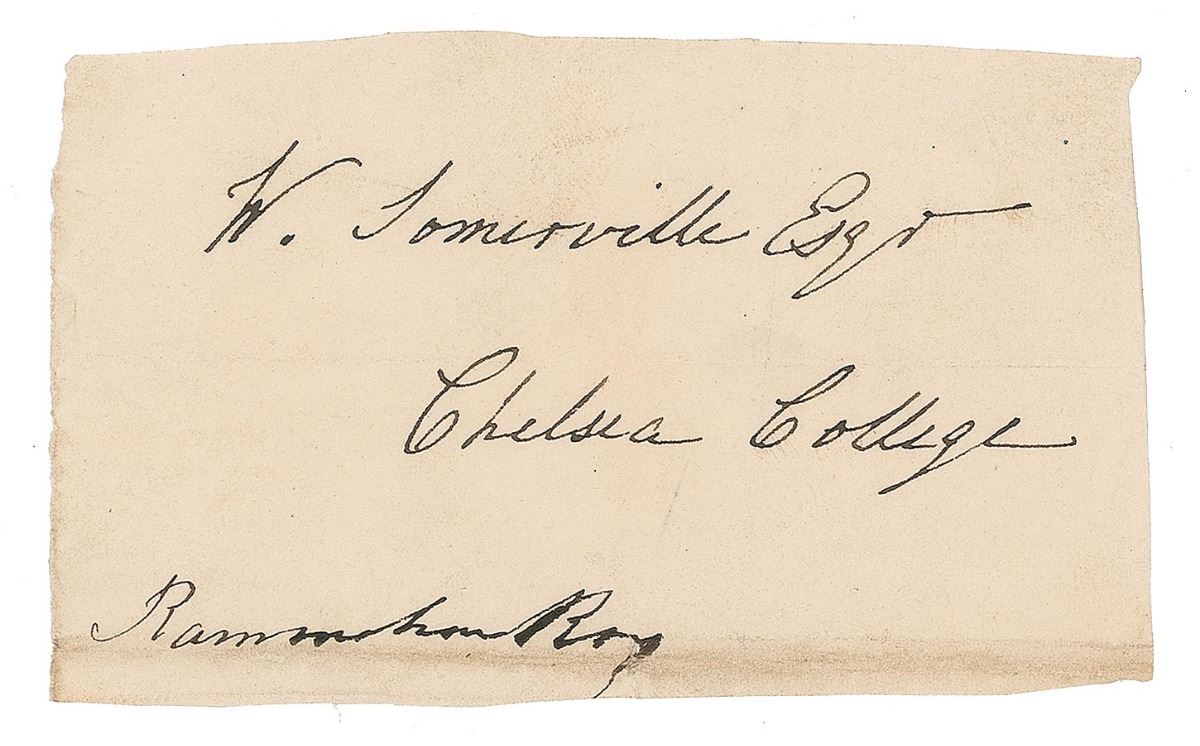 W. Somerville Esqr
Chelsea College
Rammohun Roy